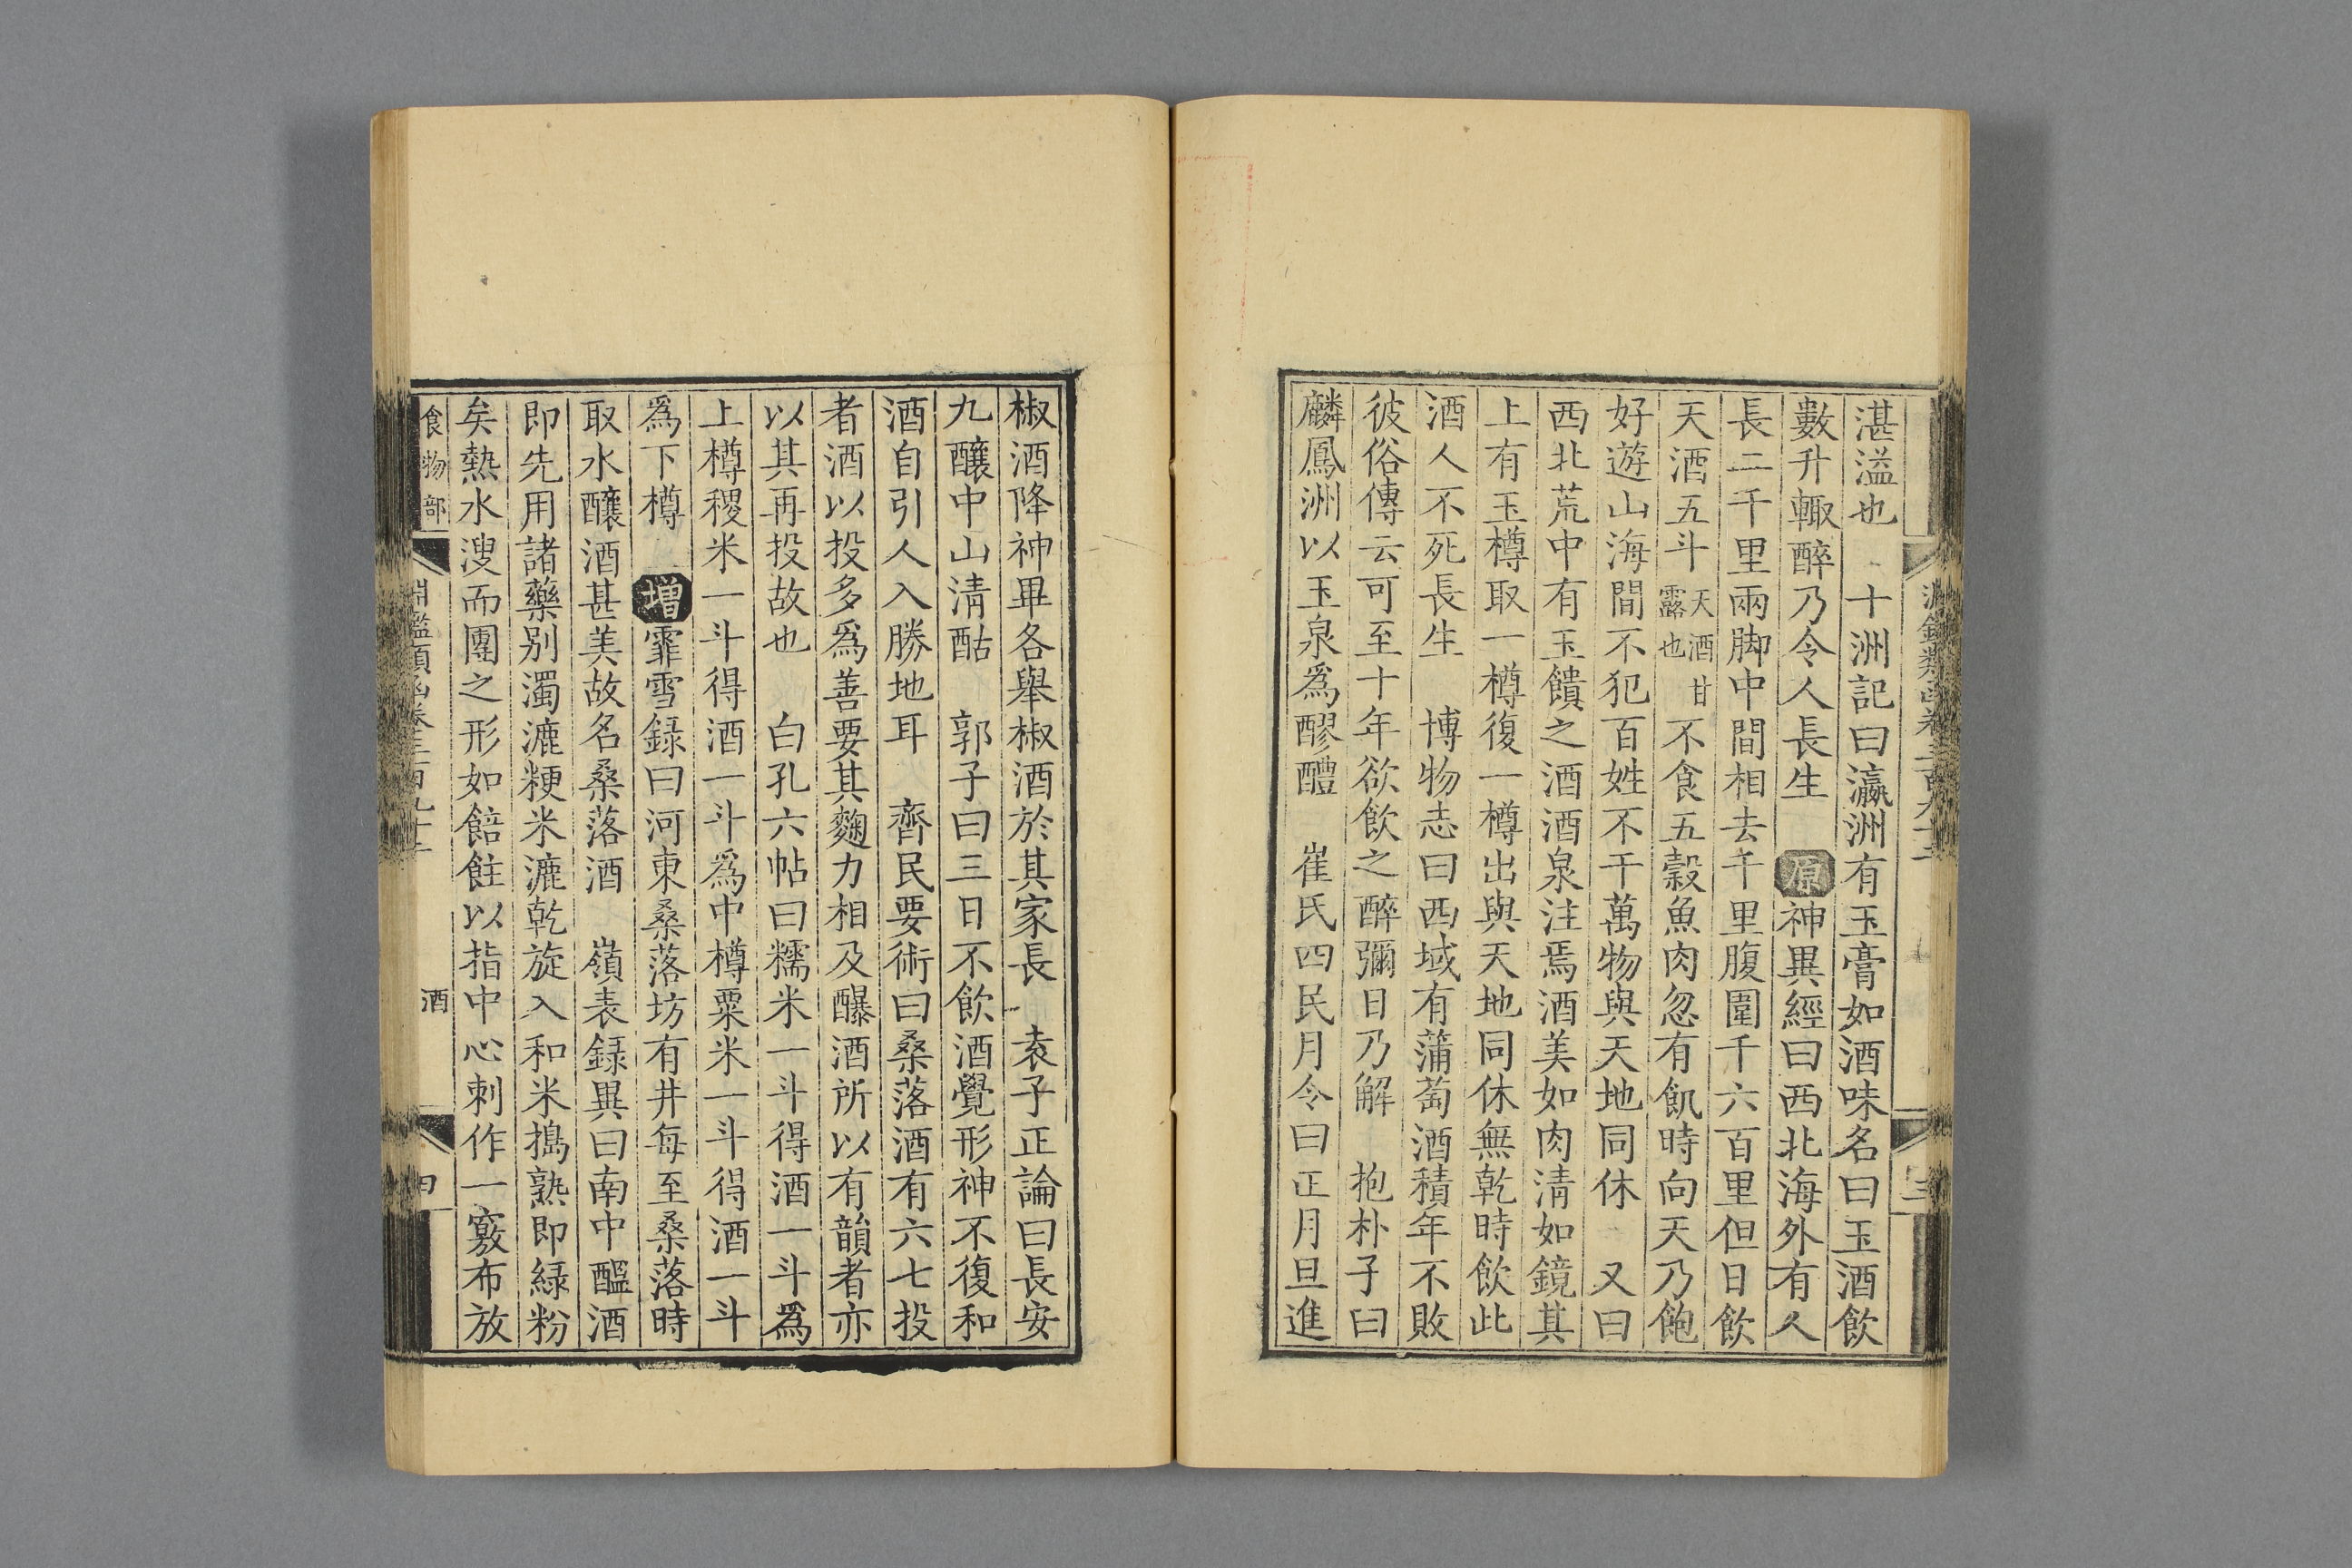 湛溢也　十洲記曰瀛洲有玉膏如酒味名曰玉酒飲
數升輙醉乃令人長生　原神異經曰西北海外有人
長二千里兩脚中間相去千里腹圍千六百里但日飲
天酒五斗天酒甘露也不食五穀魚肉忽有飢時向天乃飽
好遊山海間不犯百姓不干萬物與天地同休　又曰
西北荒中有玉饋之酒酒泉注焉酒美如肉清如鏡其
上有玉樽取一樽復一樽出與天地同休無乾時飲此
酒人不死長生　博物志曰西域有蒲萄酒積年不敗
彼俗傳云可至十年欲飲之醉彌日乃解　抱朴子曰
麟鳳洲以玉泉爲醪醴　崔氏四民月令曰正月旦進
椒酒降神畢各舉椒酒於其家長　袁子正論曰長安
九釀中山清酤　郭子曰三日不飲酒覺形神不復和
酒自引人入勝地耳　齊民要術曰桑落酒有六七投
者酒以投多爲善要其麴力相及醸酒所以有韻者亦
以其再投故也　白孔六帖曰糯米一斗得酒一斗爲
上樽稷米一斗得酒一斗爲中樽粟米一斗得酒一斗
爲下樽　增霏雪録曰河東桑落坊有井每至桑落時
取水釀酒甚美故名桑落酒　嶺表録異曰南中醞酒
即先用諸藥别濁漉粳米漉乾旋入和米搗熟即緑粉
矣熱水溲而團之形如餢飳以指中心刺作一竅布放
食物部　淵鑑類函卷三百九十二　酒　四